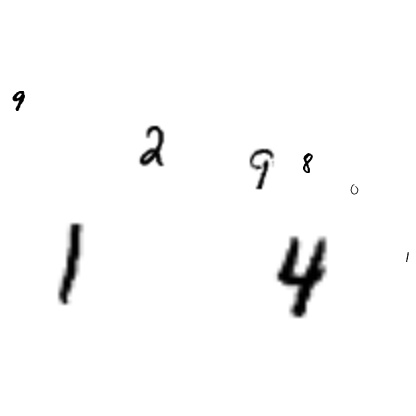 9
2
9 8
0
1 4 1